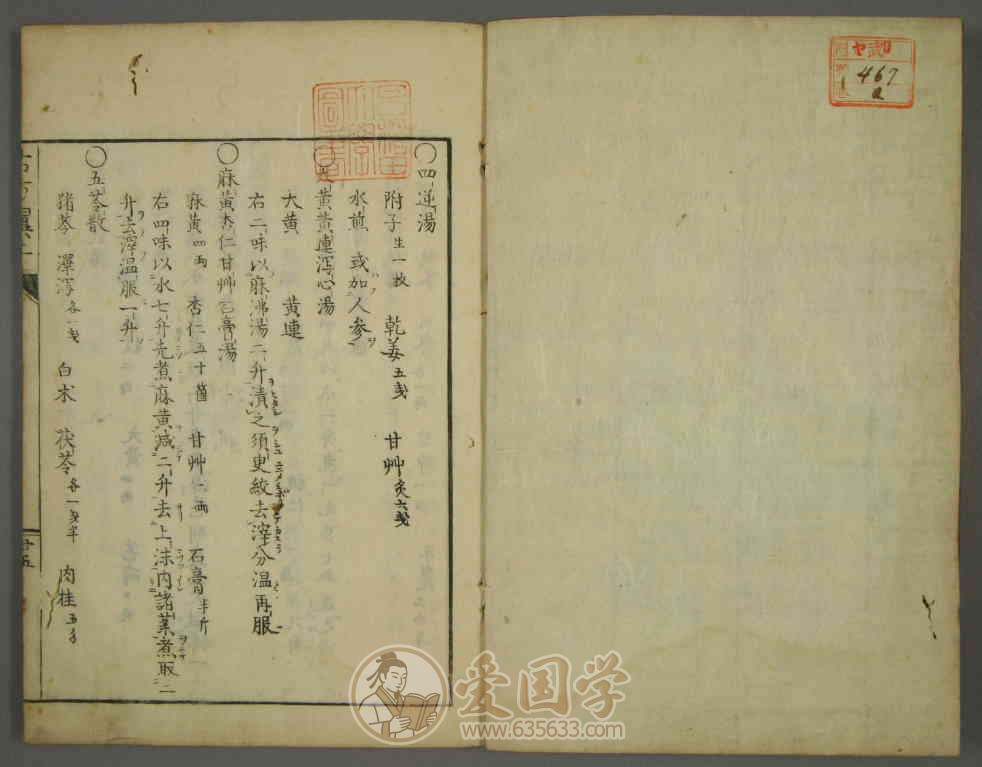 467
a
〇四逆湯
附子生一枚 乾姜五戔 甘艸炙六戔
水煎或加人参
大黄黄連瀉心湯
大黄 黄連
右二味以麻沸湯二升漬之須更絞去滓分温再服
〇麻黄杏仁甘艸石膏湯
麻黄四両 杏仁五十箇 甘艸一両 石膏半斤
右四味以水七升先煮麻黄减二升去上沫内諸薬煮取二
升去滓温服一升
〇五苓散
猪苓 澤瀉各一戔 白术 茯苓各一戔半 肉桂五分
廿五
爱国学
www.635633.com